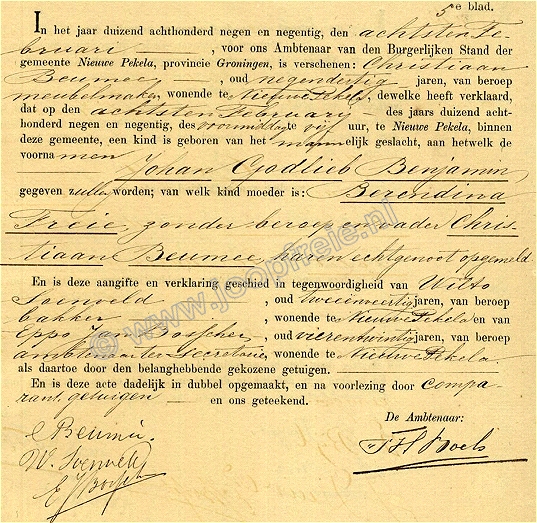 5e blad.
In het jaar duizend achthonderd negen en negentig, den achtsten Fe-
bruari, voor ons Ambtenaar van den Burgerlijken Stand der
gemeente Nieuwe Pekela, provincie Groningen, is verschenen: Christiaan
Beumee, oud negendertig jaren, van beroep
meubelmaker, wonende te Nieuwe Pekela, dewelke heeft verklaard,
dat op den achtsten February des jaars duizend acht-
honderd negen en negentig, des voormiddags te vijf uur, te Nieuwe Pekela, binnen
deze gemeente, een kind is geboren van het mannelijk geslacht, aan hetwelk de
voornamen Johan Godlieb Benjamin
gegeven zullen worden; van welk kind moeder is: Berendina
Freie, zonder beroep en vader Chris-
tiaan Beumee, haren echtgenoot opgemeld.
En is deze aangifte en verklaring geschied in tegenwoordigheid van Wilto
Soenveld, oud tweeenveertig jaren, van beroep
bakker, wonende te Nieuwe Pekela en van
Eppo Jan Bosscher, oud vierentwintig jaren, van beroep
ambtenaar ter secretarie, wonende te Nieuwe Pekela
als daartoe door den belanghebbende gekozene getuigen.
En is deze acte dadelijk in dubbel opgemaakt, en na voorlezing door compa-
rant, getuigen en ons geteekend.
De Ambtenaar:
C Beumée.
W. Soenveld
E J Bossch
© www.joopfreie.nl